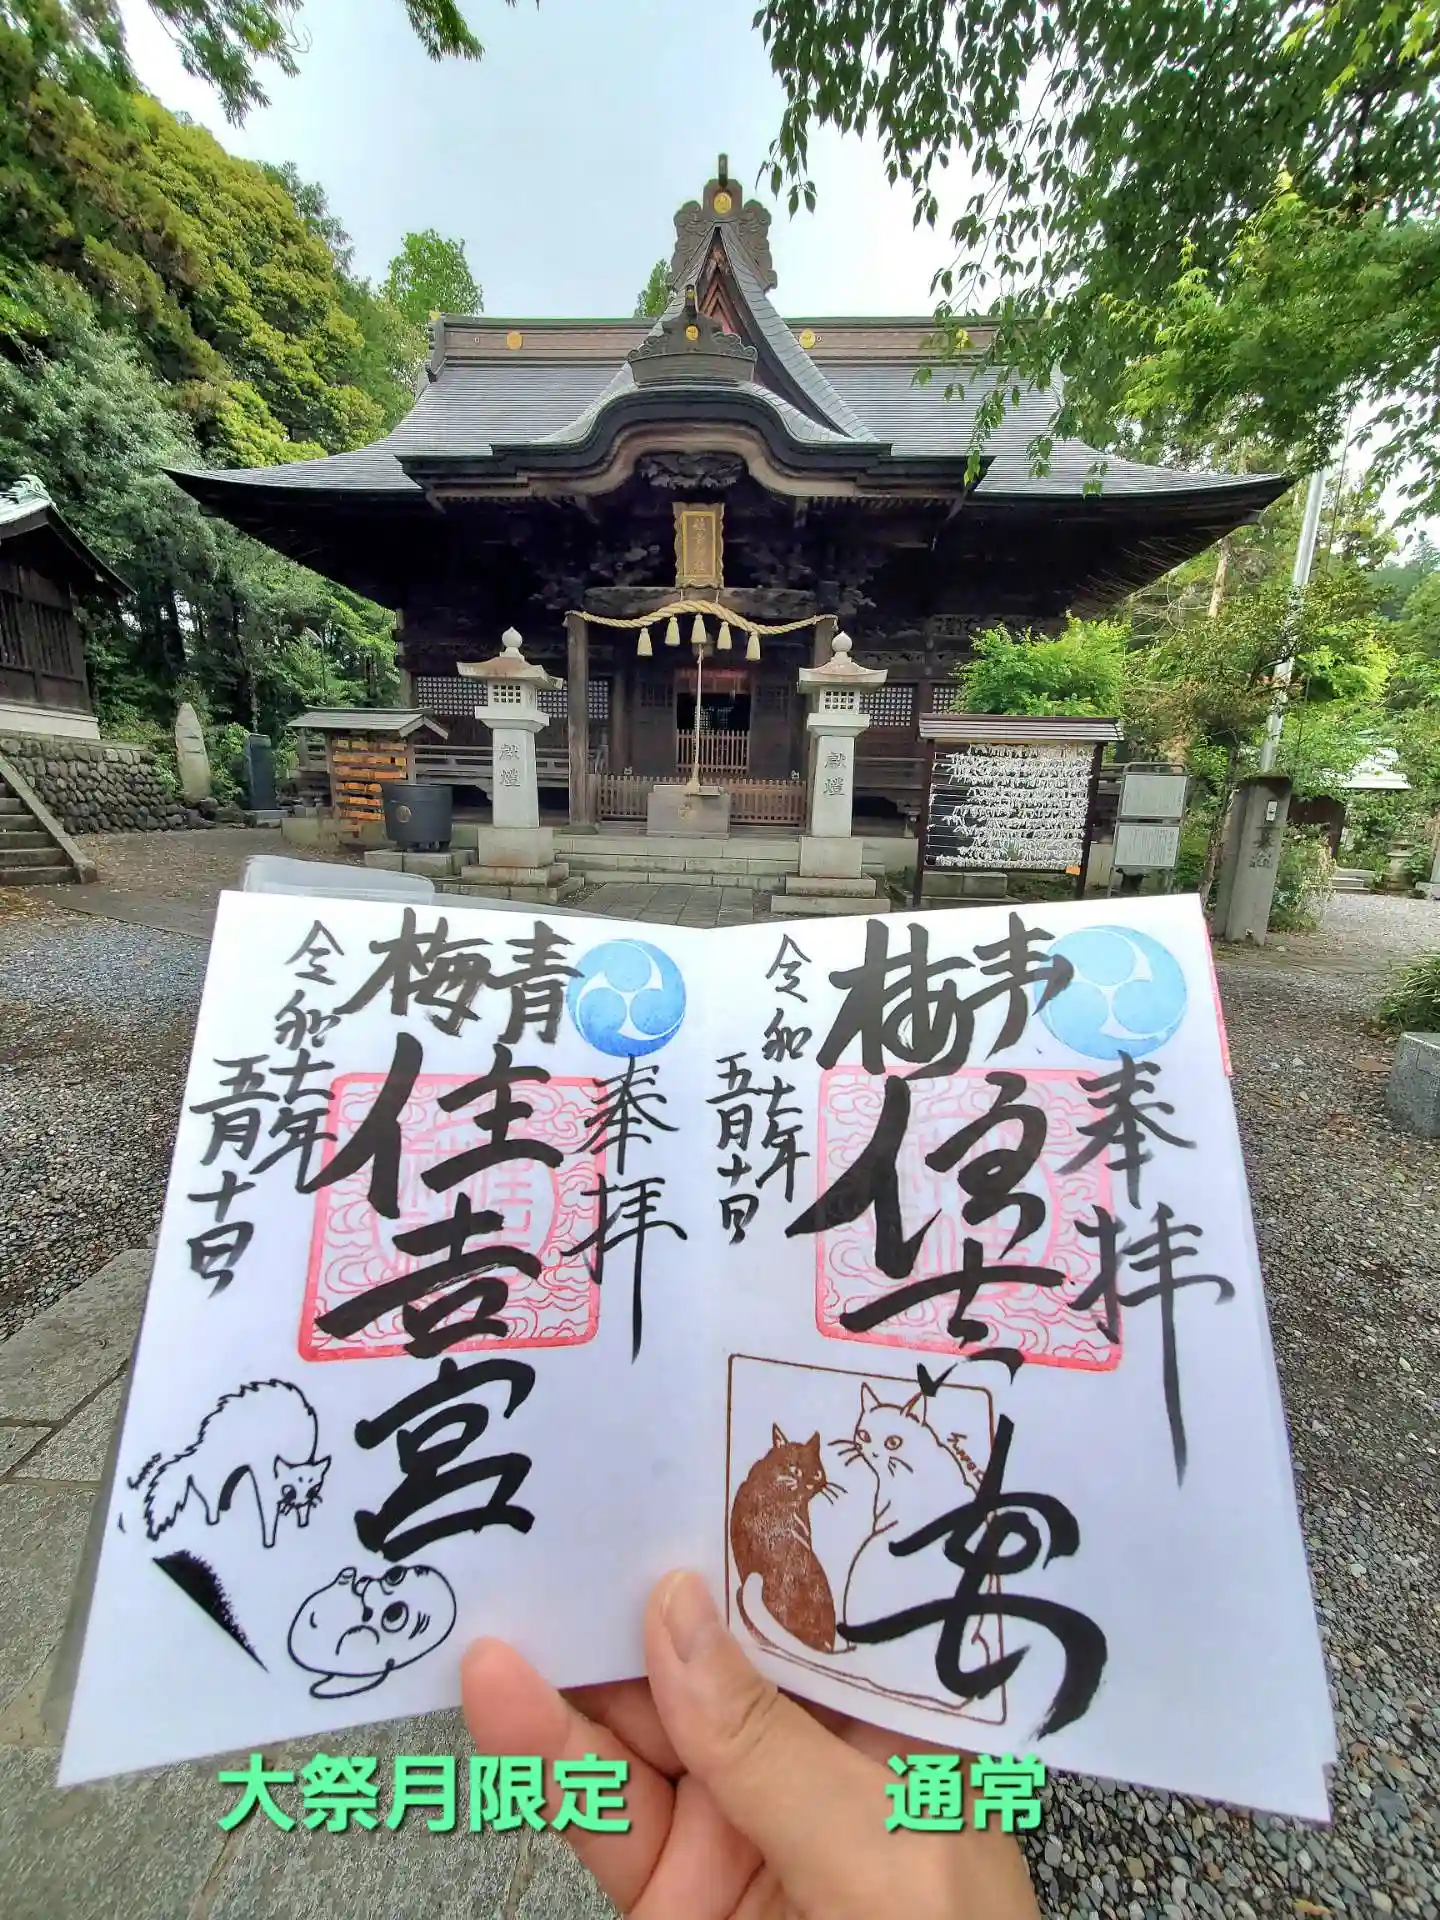 住吉神社
献燈
献燈
奉拝
青梅
住吉宮
令和七年
五月十日
奉拝
青梅
住吉宮
令和七年
五月十日
大祭月限定
通常